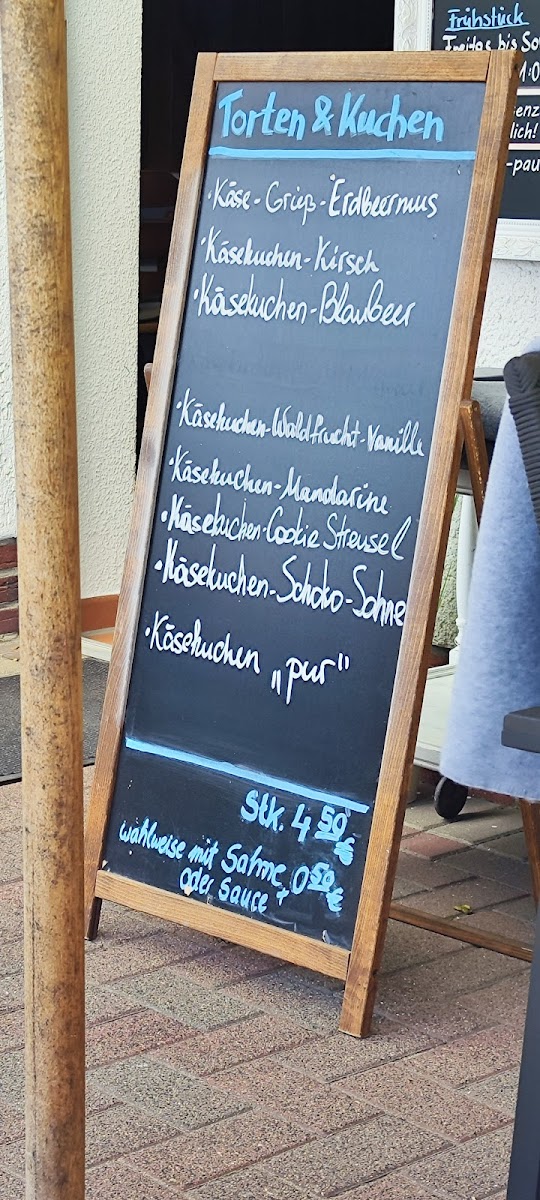 Torten & Kuchen
· Käse - Grieß - Erdbeermus
· Käsekuchen - Kirsch
· Käsekuchen - Blaubeer
· Käsekuchen - Waldfrucht - Vanille
· Käsekuchen - Mandarine
· Käsekuchen - Cookie Streusel
· Käsekuchen - Schoko - Sahne
· Käsekuchen „pur"
Stk. 4 50 €
wahlweise mit Sahne
oder Sauce + 0 50 €
Frühstück
Freitag bis So